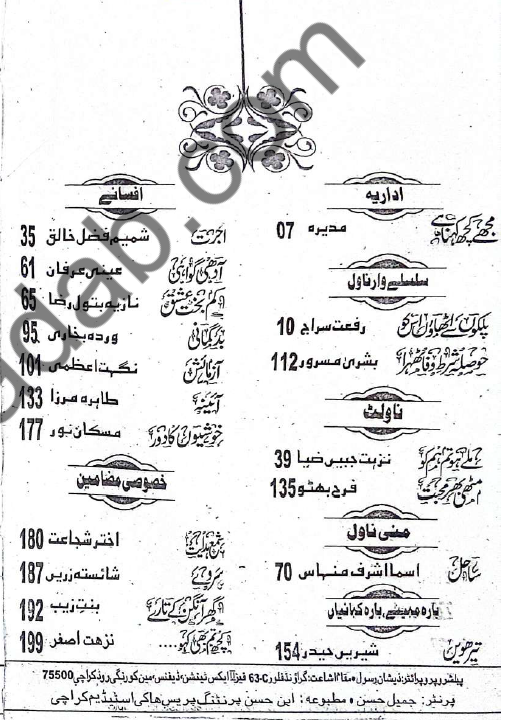 اداریہ
مجھے کچھ کہنا ہے مدیرہ 07
سلسلے وار ناول
پلکوں کے اٹھاؤں اس کو رفعت سراج 10
حوصلہ شرط وفا ٹھہرا بشریٰ مسرور 112
ناولٹ
ملے ہو تم ہم کو نزہت جبیں ضیا 39
مٹھی بھر محبت فرح بھٹو 135
منی ناول
ساحل اسما اشرف منہاس 70
بارہ مہینے، بارہ کہانیاں
تیرھویں شیریں حیدر 154
افسانے
اجرت شمیم فضل خالق 35
آدھی گواہی عینی عرفان 61
کم بخت عشق نازیہ بتول رضا 65
بدگمانی وردہ بخاری 95
آزمائش نگہت اعظمی 101
آئینہ طاہرہ مرزا 133
خوشیوں کا دور مسکان نور 177
خصوصی مضامین
شمع ہدایت اختر شجاعت 180
سروے شائستہ زریں 187
گھر آنگن کے تارے بنتِ زیب 192
کچھ ہم بھی کہو.... نزهت اصغر 199
پبلشر و پروپرائٹر: ذیشان رسول • مقام اشاعت: گراؤنڈ فلور C-63 فیز II ایکس ٹینشن، ڈیفنس، مین کورنگی روڈ کراچی 75500
پرنٹر: جمیل حسن • مطبوعہ: ابن حسن پرنٹنگ پریس ہاکی اسٹیڈیم کراچی